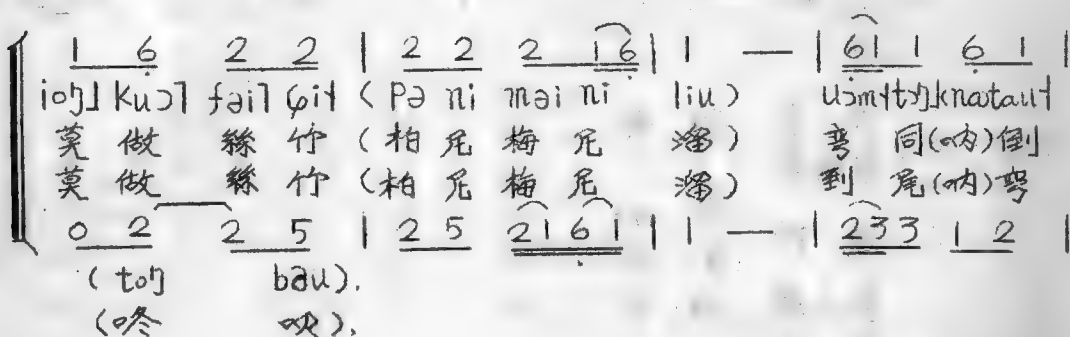 1 6̣ 2 2 | 2 2 2 1 6̣ | 1 — | 6̣ 1 1 6̣ 1 |
ioŋ˩ kuɔ˥ fəi˥ ɕi˧ ( pə ni məi ni liu )
莫 做 絲 竹 ( 柏 尼 梅 尼 溜 ) 弯 同 (呐) 倒
莫 做 絲 竹 ( 柏 尼 梅 尼 溜 ) 到 尾 (呐) 弯
0 2 2 5 | 2 5 2 1 6̣ 1 | 1 — | 2 3 3 1 2 |
( toŋ bəu ).
( 咚 ).